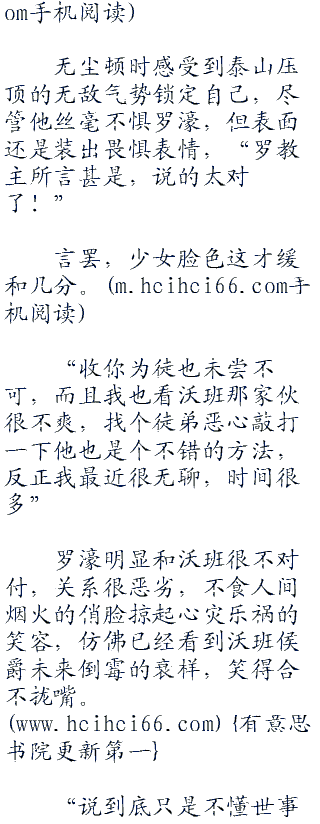 om手机阅读)
无尘顿时感受到泰山压
顶的无敌气势锁定自己，尽
管他丝毫不惧罗濠，但表面
还是装出畏惧表情，“罗教
主所言甚是，说的太对
了！”
言罢，少女脸色这才缓
和几分。(m.hcihci66.com手
机阅读)
“收你为徒也未尝不
可，而且我也看沃班那家伙
很不爽，找个徒弟恶心敲打
一下他也是个不错的方法，
反正我最近很无聊，时间很
多”
罗濠明显和沃班很不对
付，关系很恶劣，不食人间
烟火的俏脸掠起心灾乐祸的
笑容，仿佛已经看到沃班侯
爵未来倒霉的衰样，笑得合
不拢嘴。
(www.hcihci66.com){有意思
书院更新第一}
“说到底只是不懂世事